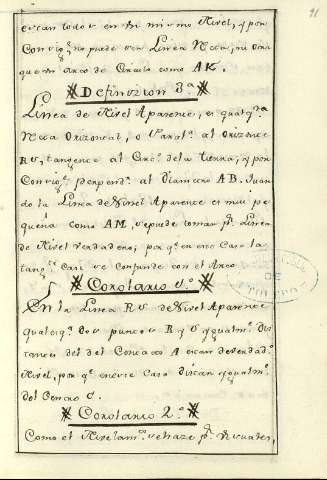 91
estan todos en un mismo Nivel, y por
Consig.te no puede ser Linea Recta, si no
que un Arco de Circulo como AK.
Definizion 3.a
Linea de Nivel Aparente, es qualq.ra
Recta Orizontal, o Paral.a al Orizonte
RS, tangente al Circ.o de la tierra, y por
Consig.te perpend.r al diametro AB. Quan
do la Linea de Nivel Aparente es mui pe
queña como AM, se puede tomar p.r Linea
de Nivel verdadero; por q.e en este Caso la
tang.te Casi se Confunde con el Arco.
Corolario 1.o
En la Linea RS de Nivel Aparente
qualesq.ra dos puntos R y S ygualm.te dis
tantes del del Contacto A estan de verdad.o
Nivel, por q.e en este Caso distan ygualm.te
del Centro C.
Corolario 2.o
Como el Nivelam.to se haze p.r Visuales,